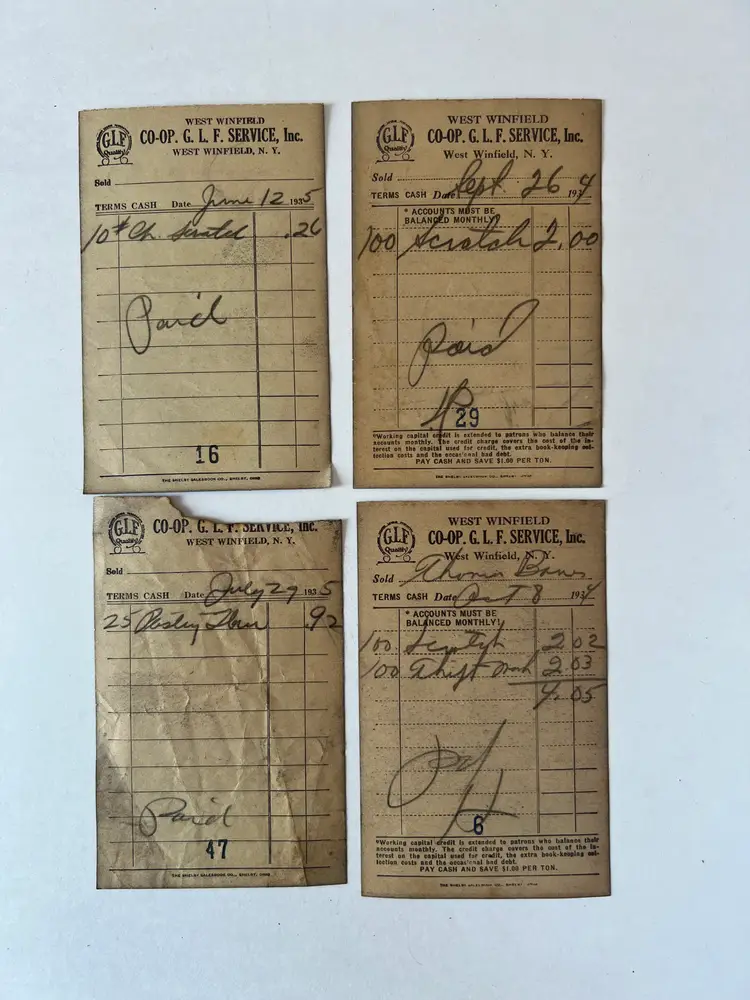 WEST WINFIELD
G.L.F. Quality
CO-OP. G. L. F. SERVICE, Inc.
WEST WINFIELD, N. Y.
Sold
TERMS CASH Date June 12 1935
10# Ch. Scratch .26
Paid
16
THE SHELBY SALESBOOK CO., SHELBY, OHIO
WEST WINFIELD
G.L.F. Quality
CO-OP. G. L. F. SERVICE, Inc.
West Winfield, N. Y.
Sold
TERMS CASH Date Sept. 26 1934
* ACCOUNTS MUST BE
BALANCED MONTHLY!
100 Scratch 2.00
Paid
29
*Working capital credit is extended to patrons who balance their
accounts monthly. The credit charge covers the cost of the in-
terest on the capital used for credit, the extra book-keeping col-
lection costs and the occasional bad debt.
PAY CASH AND SAVE $1.00 PER TON.
THE SHELBY SALESBOOK CO., SHELBY, OHIO
G.L.F. Quality
CO-OP. G. L. F. SERVICE, Inc.
WEST WINFIELD, N. Y.
Sold
TERMS CASH Date July 29 1935
25 Pastry Flour .92
Paid
47
THE SHELBY SALESBOOK CO., SHELBY, OHIO
WEST WINFIELD
G.L.F. Quality
CO-OP. G. L. F. SERVICE, Inc.
West Winfield, N. Y.
Sold Thomas
TERMS CASH Date Oct 8 1934
* ACCOUNTS MUST BE
BALANCED MONTHLY!
100 Scratch 2 02
100 Thift Mash 2 03
4.05
Pd
6
*Working capital credit is extended to patrons who balance their
accounts monthly. The credit charge covers the cost of the in-
terest on the capital used for credit, the extra book-keeping col-
lection costs and the occasional bad debt.
PAY CASH AND SAVE $1.00 PER TON.
THE SHELBY SALESBOOK CO., SHELBY, OHIO